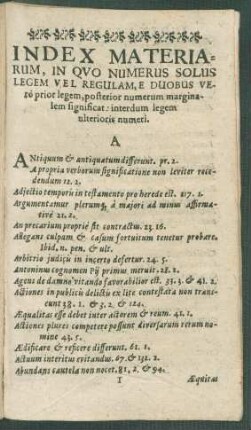 INDEX MATERIA-
RUM, IN QVO NUMERUS SOLUS
LEGEM VEL REGULAM, E DUOBUS VE-
rò prior legem, posterior numerum margina-
lem significat: interdum legem
ulterioris numeri.
A
ANtiquum & antiquatum differunt. pr. 2.
A propria verborum significatione non leviter rece-
dendum 12. 2.
Adjectio temporis in testamento pro herede est. 117. 1.
Argumentemur plerumq; à majori ad minus affirma-
tivè 21. 2.
An precarium propriè sit contractus. 23. 16.
Allegans culpam & casum fortuitum tenetur probare.
Ibid. n. pen. & ult.
Arbitrio judicis in incerto defertur. 24. 5.
Antoninus cognomen Pij primus meruit. 28. 2.
Agens de damno vitando favorabilior est. 33. 3. & 41. 2.
Actiones in publicis delictis ex lite contestata non trans-
eunt 38. 1. & 3. 2. & 124.
Æqualitas esse debet inter actorem & reum. 41. 1.
Actiones plures competere possunt diversarum rerum no-
mine 43. 5.
Ædificare & reficere differunt. 61. 1.
Actuum interitus evitandus. 67. & 132. 2.
Abundans cautela non nocet. 81. 2. & 94.
I Æquitas